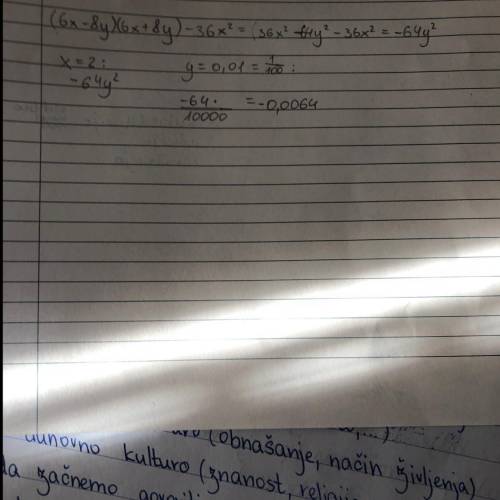 (6x-8y)(6x+8y)-36x² = (36x²-64y²-36x² = -64y²
x=2: y=0,01=1/100:
-64y² -64·/10000 = -0,0064
(obnašanje, način življenja)
kulturo (znanost, religija
začnemo